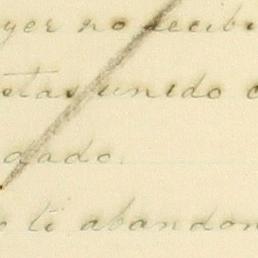 yer no recibi
etas unido c
dado.
o ti abandon